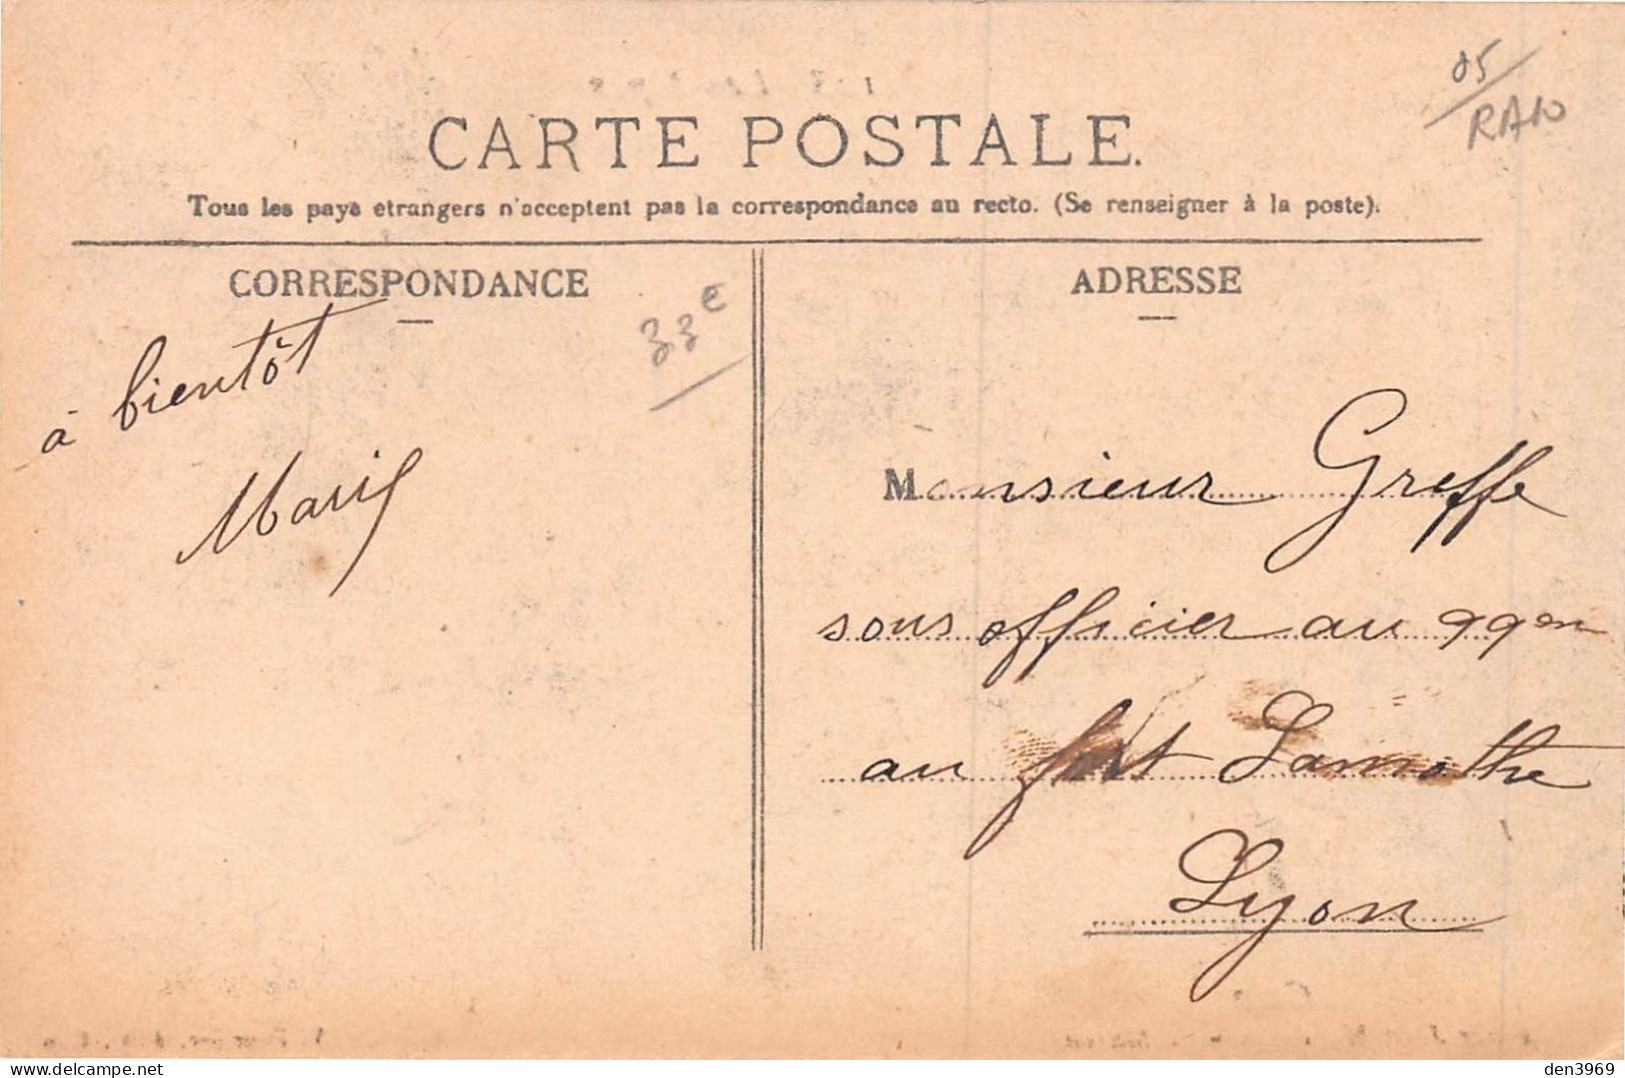 05
RA10
CARTE POSTALE.
Tous les pays etrangers n'acceptent pas la correspondance au recto. (Se renseigner à la poste).
CORRESPONDANCE
ADRESSE
33€
à bientôt
Monsieur Greffe
sous officier au 99em
au fort Lamothe
Lyon
den3969